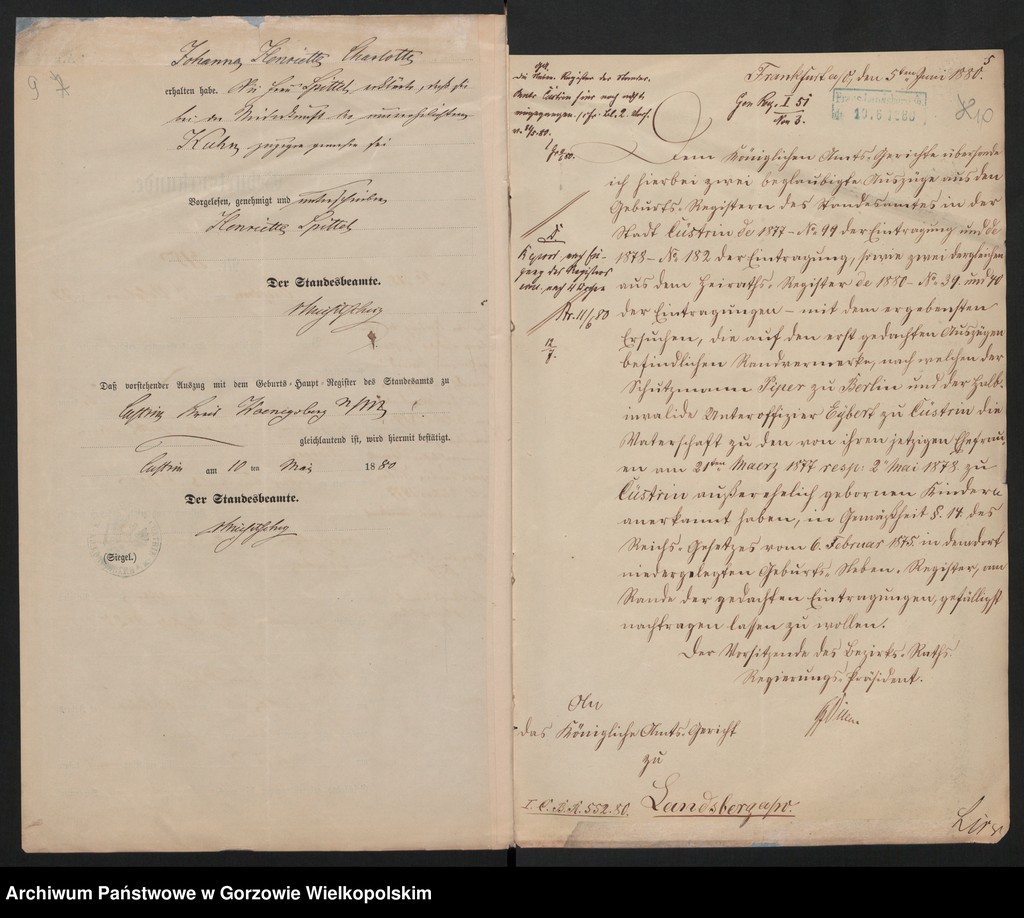 Johanna Henriette Charlotte
erhalten habe. Die Frau Spittel erklärte, daß sie
bei der Niederkunft der unverehelichten
Kuhn zugegen gewesen sei
Vorgelesen, genehmigt und unterschrieben
Henriette Spittel
Der Standesbeamte.
Daß vorstehender Auszug mit dem Geburts-Haupt-Register des Standesamts zu
Cüstrin Kreis Koenigsberg N/M
gleichlautend ist, wird hiermit bestätigt.
Cüstrin am 10 ten Mai 1880
Der Standesbeamte.
(Siegel.)
5
Frankfurt a/O, den 5ten Juni 1880.
Gen Reg. I 51
Nro 3.
Dem Königlichen Amts-Gerichte übersende
ich hierbei zwei beglaubigte Auszüge aus den
Geburts-Registern des Standesamtes in der
Stadt Cüstrin de 1877 - No 94 der Eintragung und de
1878 - No 182 der Eintragung, sowie zwei dergleichen
aus dem Heiraths-Register de 1880 - No 39. und 40
der Eintragungen - mit dem ergebensten
Ersuchen, die auf den erst gedachten Auszügen
befindlichen Randvermerke, nach welchen der
Schutzmann Piper zu Berlin und der Halb-
invalide Unteroffizier Eybert zu Cüstrin die
Vaterschaft zu den von ihren jetzigen Ehefrau-
en am 21ten Maerz 1877 resp: 2 Mai 1878 zu
Cüstrin außerehelich gebornen Kindern
anerkannt haben, in Gemäßheit §. 14. des
Reichs-Gesetzes vom 6. Februar 1875. in dem dort
niedergelegten Geburts-Neben-Register, am
Rande der gedachten Eintragungen, gefälligst
nachtragen lassen zu wollen.
Der Vorsitzende des Bezirks-Raths.
Regierungs-Präsident.
An
das Königliche Amts-Gericht
zu
Landsberg a/W.
I. C. B. R. 552. 80.
Archiwum Państwowe w Gorzowie Wielkopolskim